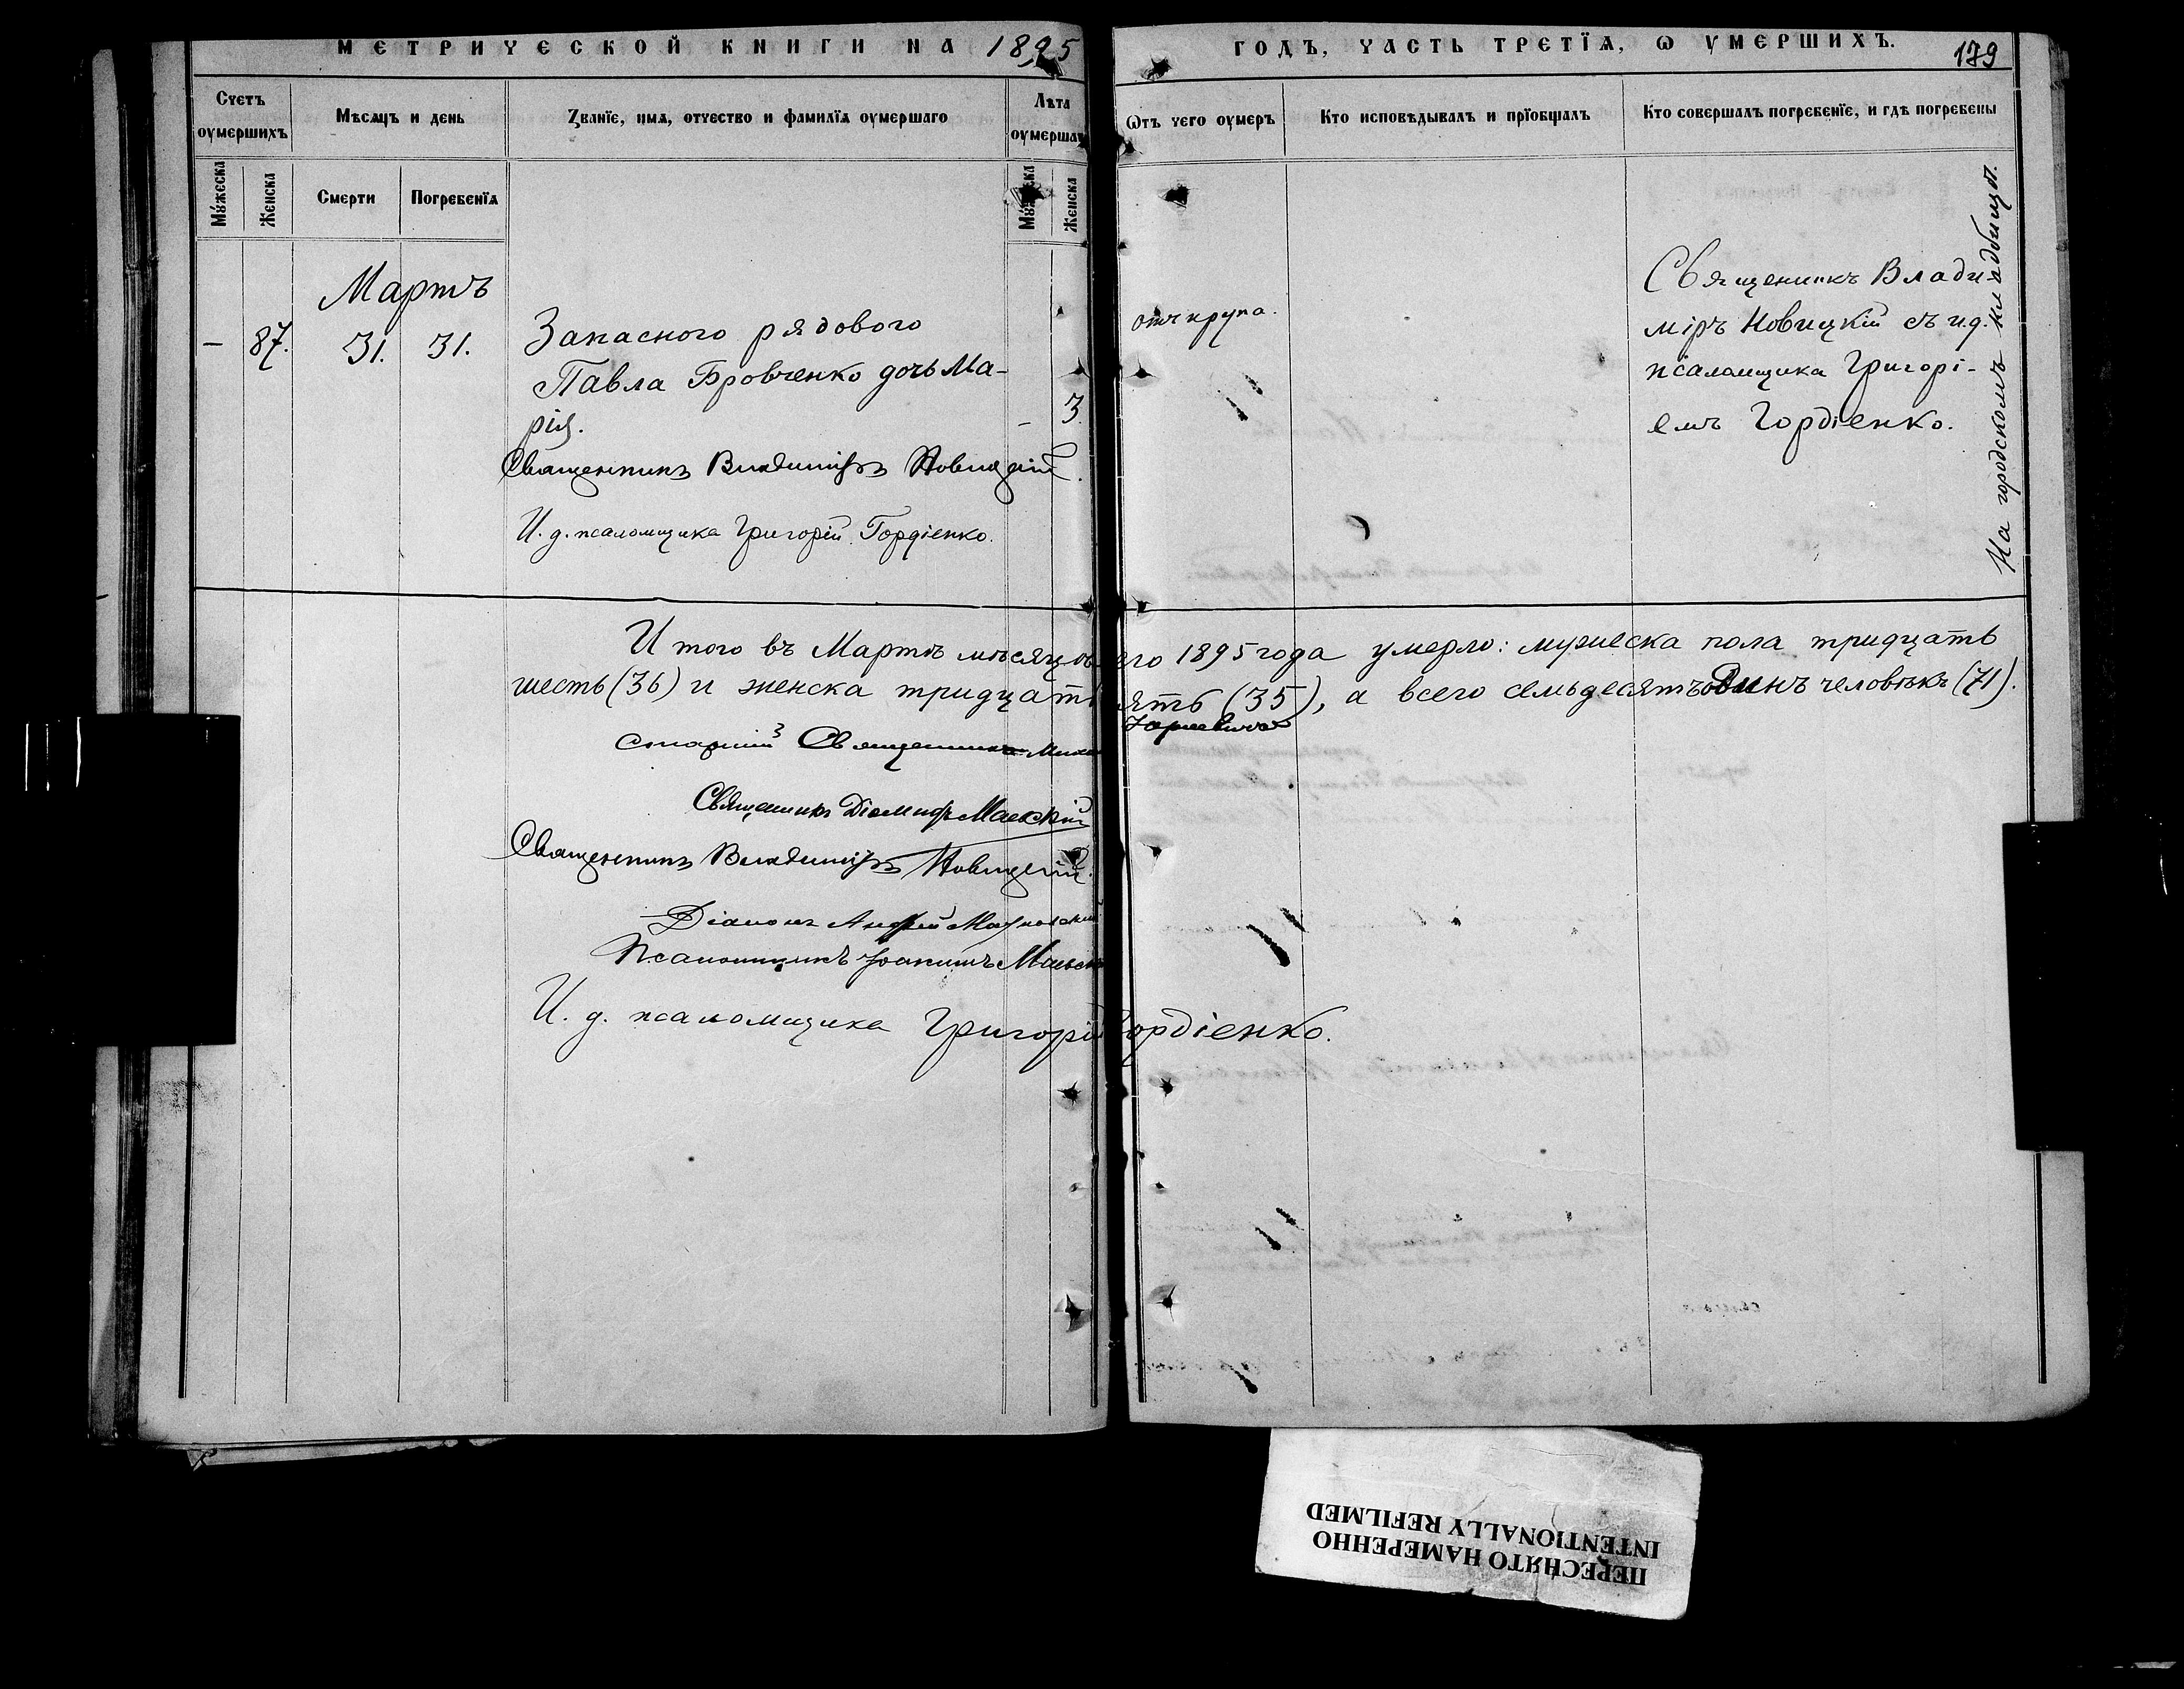 МЕТРИЧЕСКОЙ КНИГИ НА 1895
ГОДЪ, ЧАСТЬ ТРЕТЇѦ, Ѡ УМЕРШИХЪ.
179
Счетъ оумершихъ
Мѣсѧцъ и день
Званїе, имѧ, отчество и фамилїѧ оумершаго
Лѣта оумершаго
Ѿтъ чего оумеръ
Кто исповѣдывалъ и прїобщалъ
Кто совершалъ погребенїе, и гдѣ погребены
Мꙋжеска
Женска
Смерти
Погребенїѧ
Мꙋжеска
Женска
Мартъ
– 87. 31. 31.
Запаснаго рядового
Павла Бровченко дочь Ма-
рія.
– 3.
отъ крупа.
Священникъ Влади-
міръ Новицкій съ и.д.
псаломщика Григорі-
емъ Гордіенко.
На городскомъ кладбищѣ.
Священникъ Владиміръ Новицкій.
И. д. псаломщика Григорій Гордіенко.
Итого въ Мартѣ мѣсяцѣ сего 1895 года умерло: мужеска пола тридцать
шесть (36) и женска тридцать пять (35), а всего семьдесятъ одинъ человѣкъ (71).
Старшій Священникъ
Священникъ Діомидъ Маевскій
Священникъ Владиміръ Новицкій.
Діаконъ Андрей
Псаломщикъ Іоакимъ Маевскій
И. д. псаломщика Григорій Гордіенко.
ПЕРЕСНЯТО НАМЕРЕННО
INTENTIONALLY REFILMED